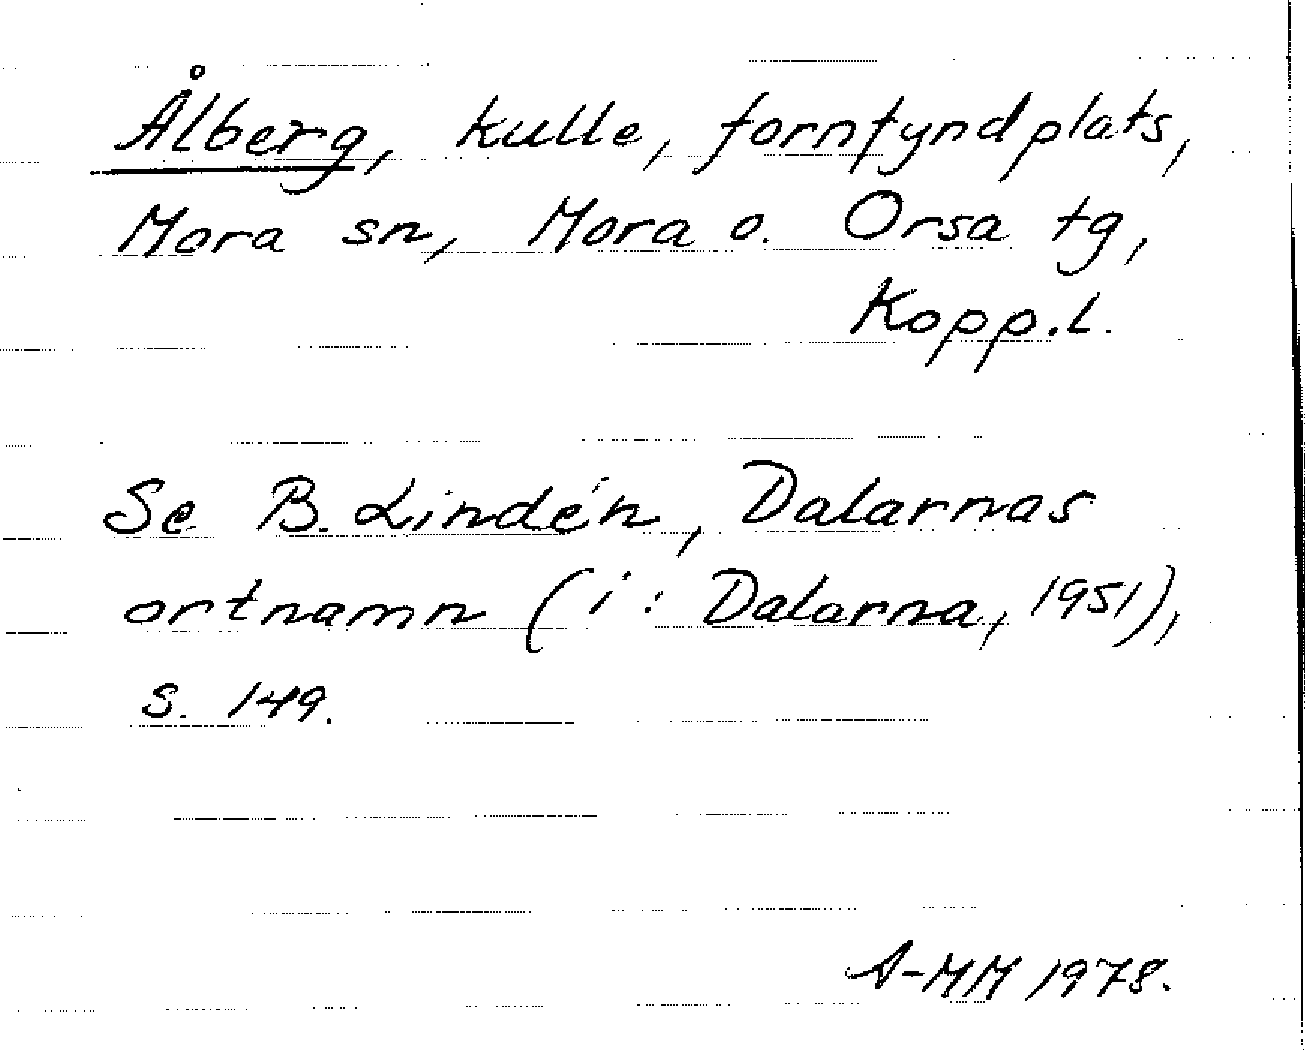 Ålberg, kulle, fornfyndplats,
Mora sn, Mora o. Orsa tg,
Kopp.l.
Se B. Lindén, Dalarnas
ortnamn (i: Dalarna, 1951),
s. 149.
A-MM 1978.